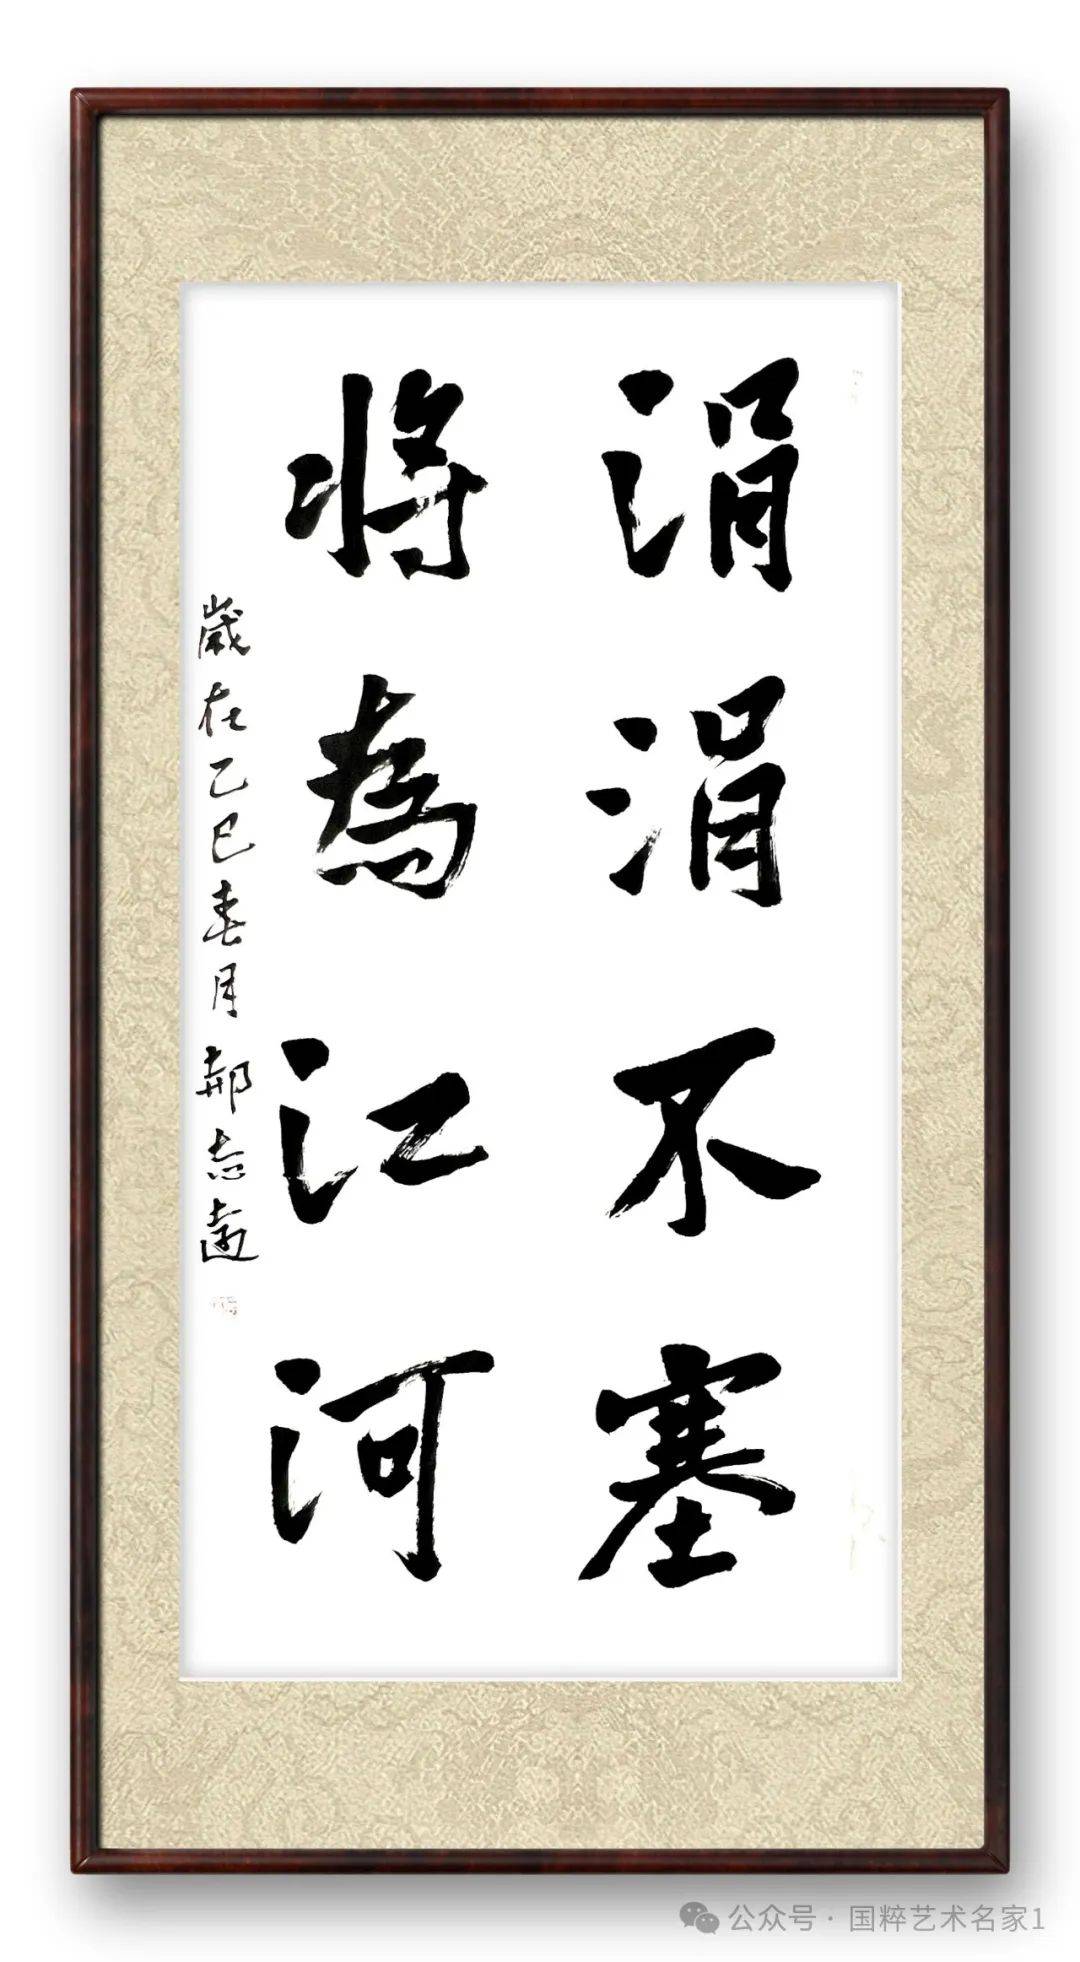 涓涓不塞
将為江河
歲在乙巳春月郝志遠
公众号·国粹艺术名家1